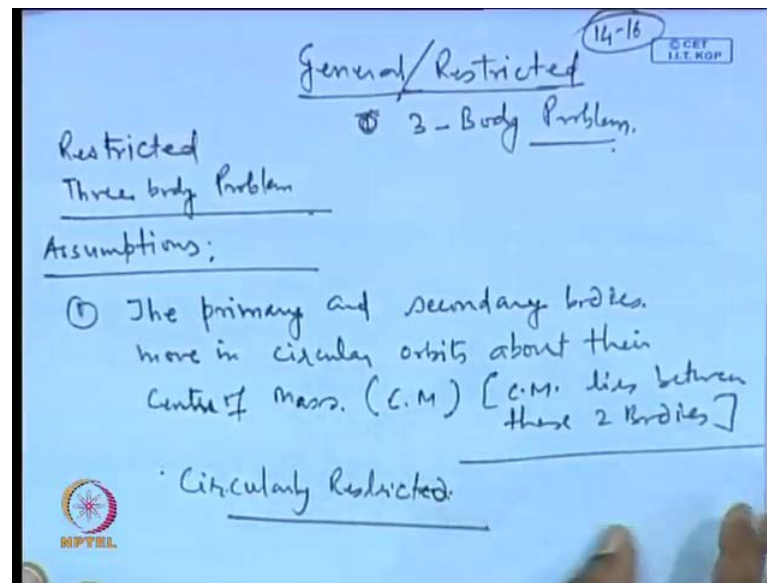 14-16
© CET
I.I.T. KGP
General/Restricted
3-Body Problem.
Restricted
Three body Problem
Assumptions:
① The primary and secondary bodies.
move in circular orbits about their
Centre of Mass. (C.M) [C.M. lies between
these 2 Bodies]
Circularly Restricted.
NPTEL